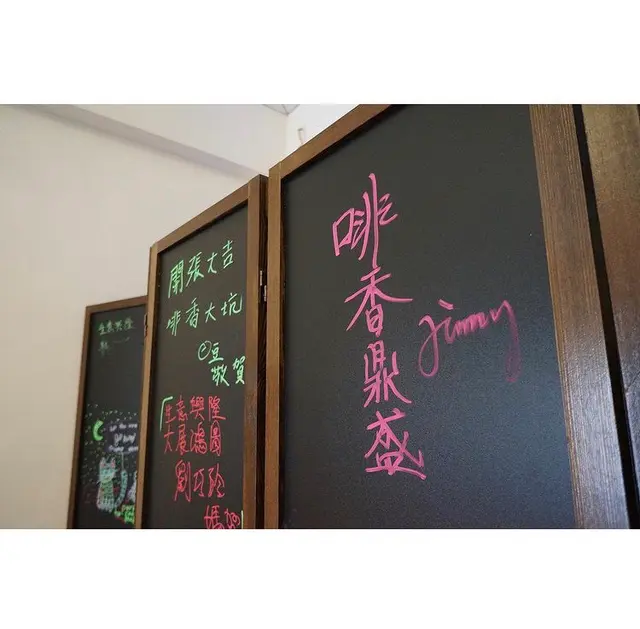 生意興隆
開張大吉
啡香大坑
豆
敬賀
生意興隆
大展鴻圖
劉巧玲
啡香鼎盛
Jimmy